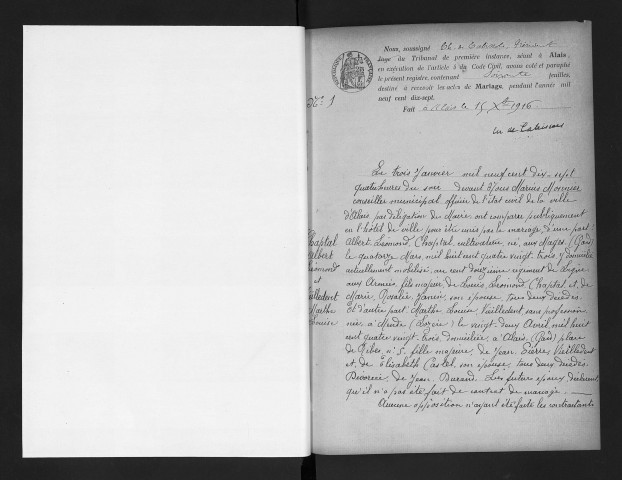 Nous, soussigné
Juge du Tribunal de première instance, séant à Alais,
en exécution de l'article 41 du Code Civil, avons coté et paraphé
le présent registre, contenant Soixante feuilles,
destiné à recevoir les actes de Mariage, pendant l'année mil
neuf cent dix-sept.
Fait à Alais le 15 Xbre 1916
N° 1
Chaptal
Albert
Léomond
et
Vieilledent
Marthe
Louise
Le trois Janvier mil neuf cent dix-sept
quatre heures du soir devant Nous Marius Monnier
conseiller municipal officier de l'état civil de la ville
d'Alais par délégation du Maire ont comparu publiquement
en l'hôtel de ville pour être unis par le mariage, d'une part:
Albert Léomond Chaptal, cultivateur né aux Mages (Gard)
le quatorze Mars mil huit cent quatre vingt trois, y domicilié
actuellement mobilisé au cent douzième régiment de ligne
aux Armées, fils majeur de Louis Léomond Chaptal et de
Marie Rosalie Janin son épouse tous deux décédés.
Et d'autre part: Marthe Louise Vieilledent sans profession
née à Mende (Lozère) le vingt deux Avril mil huit
cent quatre vingt trois, domiciliée à Alais (Gard) place
de n° 5, fille majeure de Jean Pierre Vieilledent
et de Elisabeth Castel, son épouse, tous deux décédés,
Divorcée de Jean Durand. Les futurs époux déclarent
qu'il n'a pas été fait de contrat de mariage.
Aucune opposition n'ayant été faite les contractants